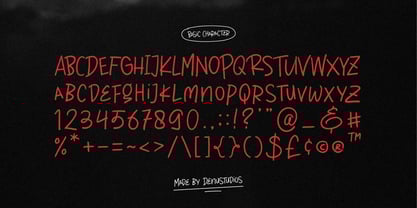 BASIC CHARACTER
ABCDEFGHIJKLMNOPQRSTUVWXYZ
ABCDEFGHIJKLMNOPQRSTUVWXYZ
1234567890.,:;!?'"@_&#
%*+-=~<>/\[]{}()$£¢©®™
MADE BY DENUSTUDIOS